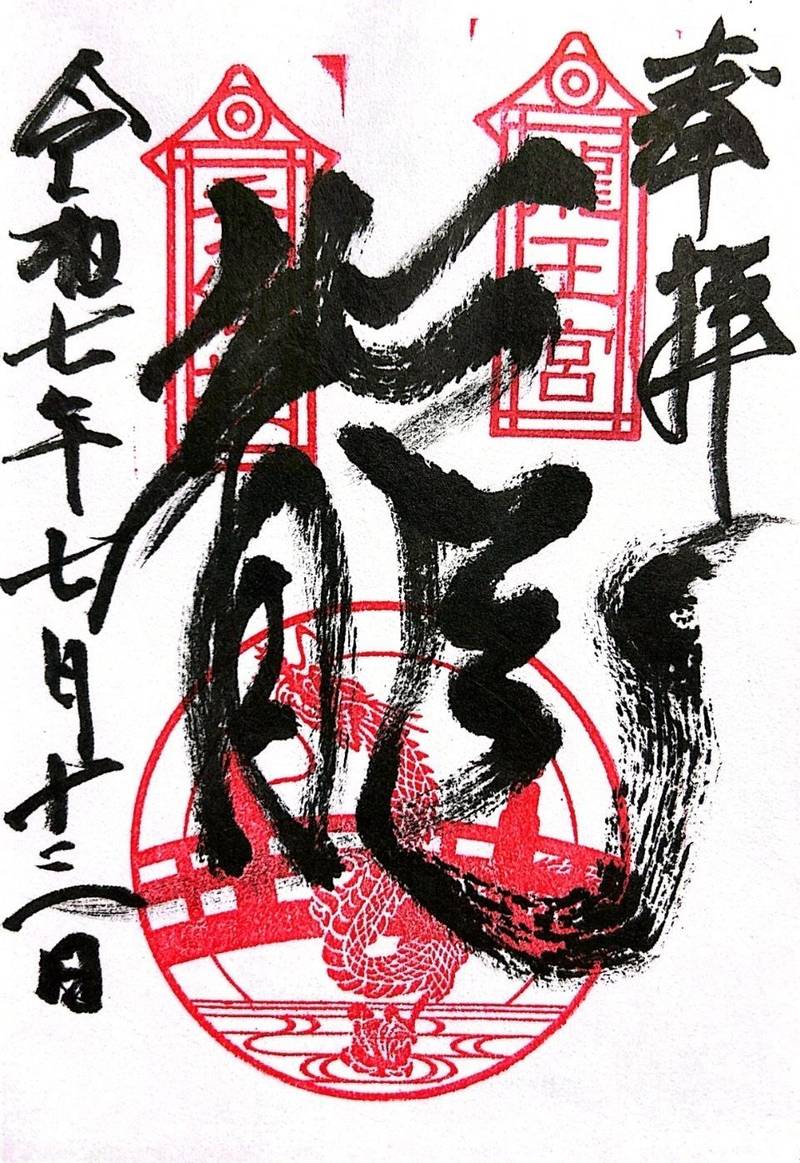 奉拝
龍王宮
龍
令和七年七月十三日